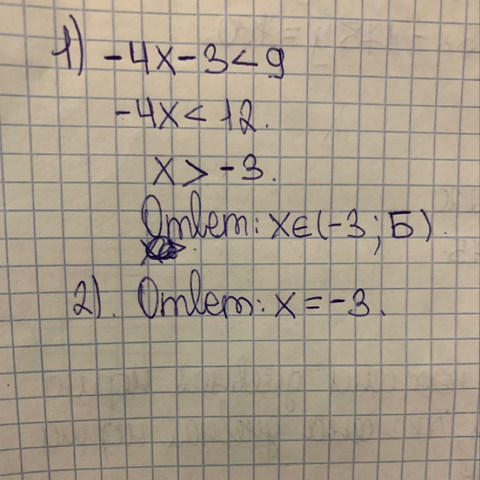 1) -4x-3<9
-4x<12.
x>-3.
Ответ: x∈(-3; Б).
2). Ответ: x=-3.